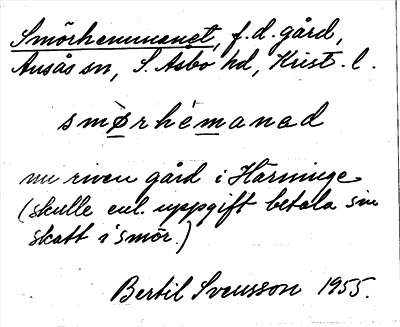 Smörhemmanet, f.d. gård,
Ausås sn, S. Åsbo hd, Krist. l.
smørhèmanad
nu riven gård i Härninge
(skulle enl. uppgift betala sin
skatt i smör.)
Bertil Svensson 1955.